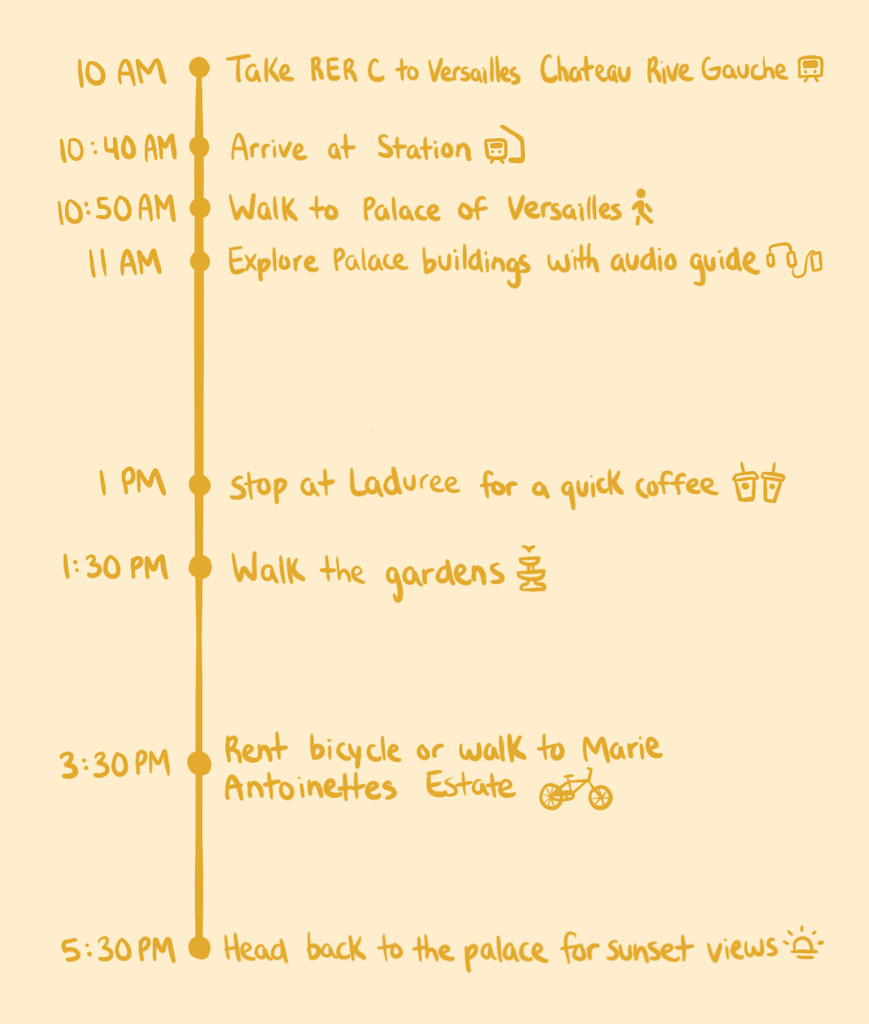 10 AM Take RER C to Versailles Chateau Rive Gauche
10:40 AM Arrive at Station
10:50 AM Walk to Palace of Versailles
11 AM Explore Palace buildings with audio guide
1 PM stop at Laduree for a quick coffee
1:30 PM Walk the gardens
3:30 PM Rent bicycle or walk to Marie
Antoinettes Estate
5:30 PM Head back to the palace for sunset views